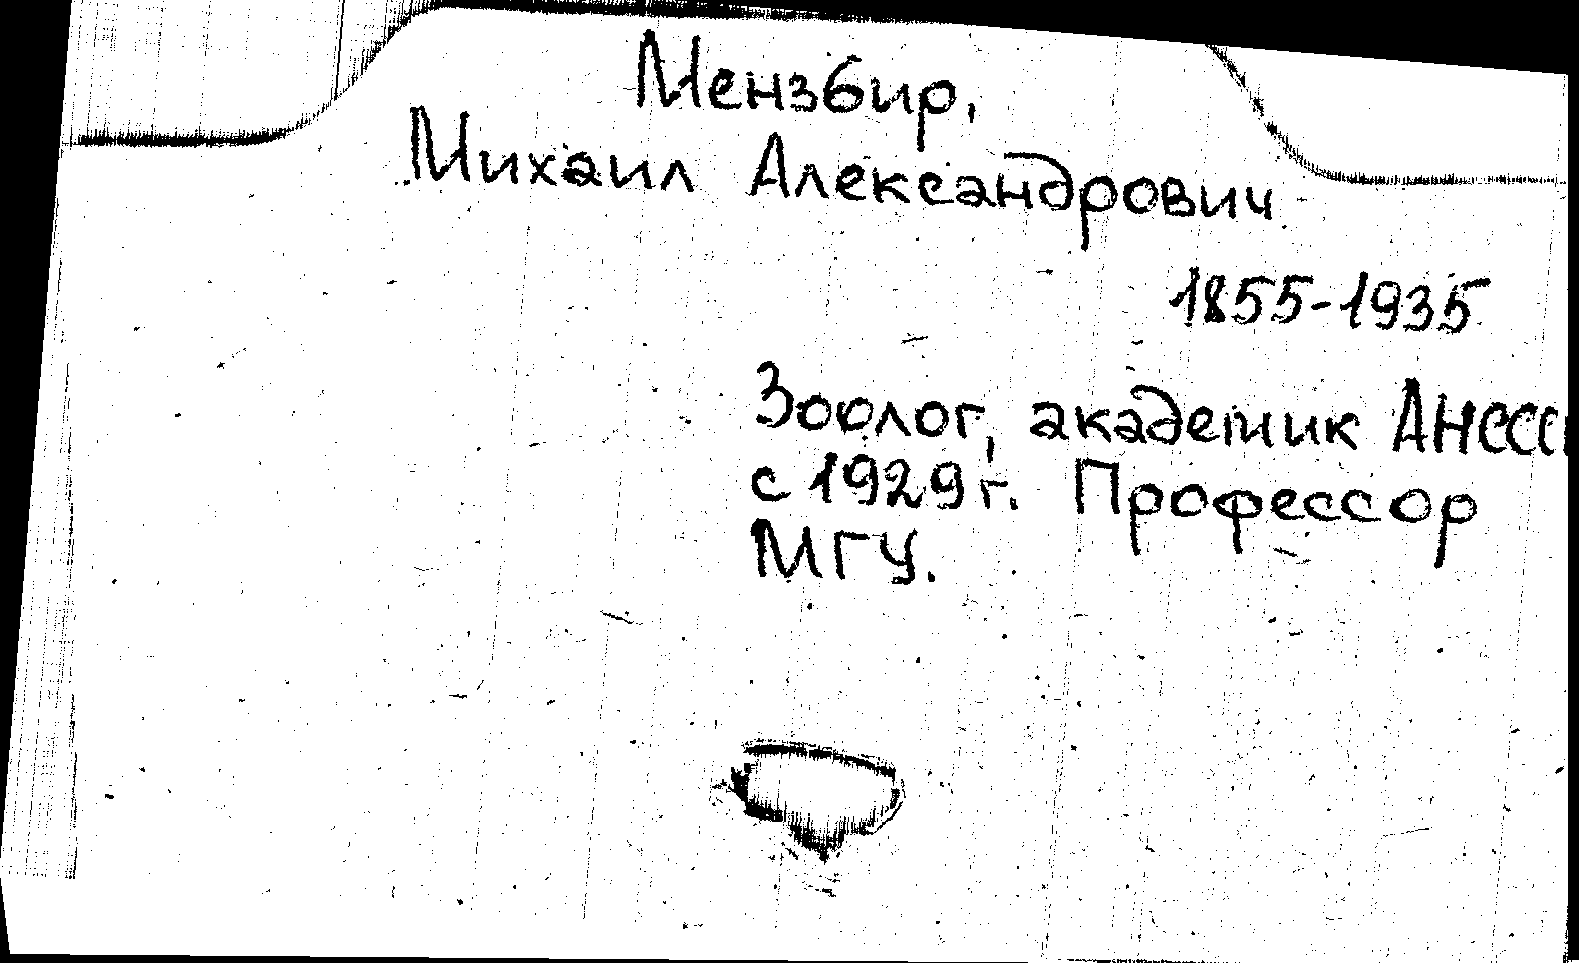 Мензбир,
Михаил Александрович
1855-1935
Зоолог, академик АНССС
с 1929 г. Профессор
МГУ.